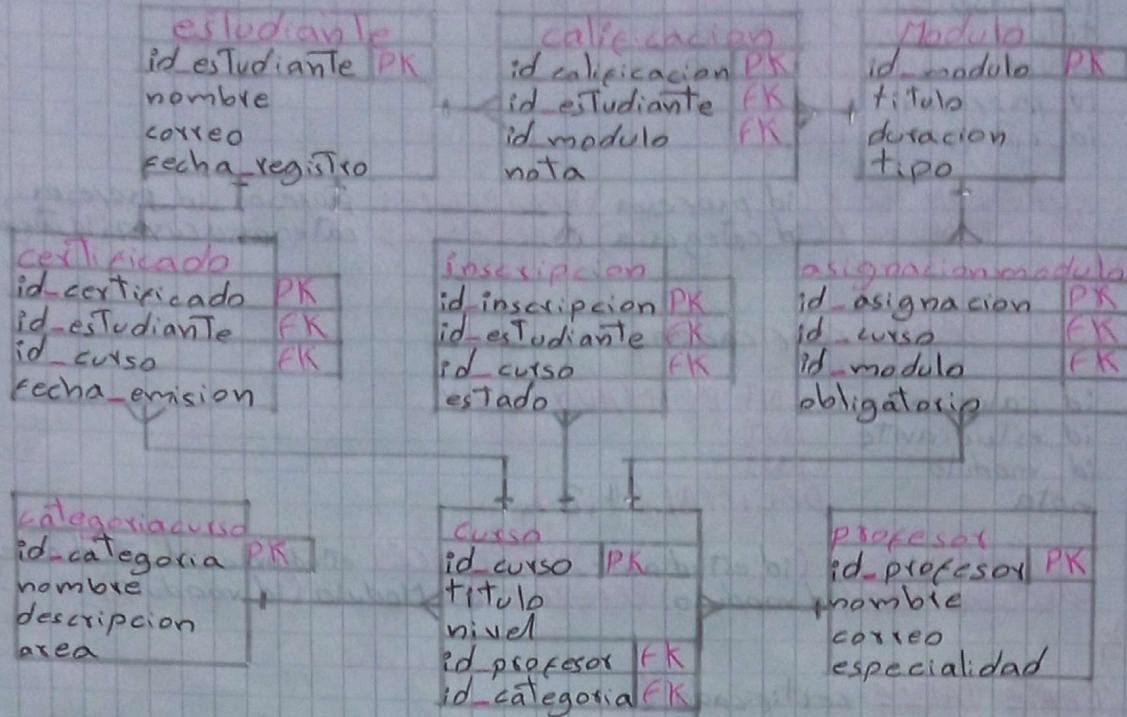 estudiante
id_estudiante PK
nombre
correo
fecha_registro
calificacion
id_calificacion PK
id_estudiante FK
id_modulo FK
nota
Modulo
id_modulo PK
titulo
duracion
tipo
certificado
id_certificado PK
id_estudiante FK
id_curso FK
fecha_emision
inscripcion
id_inscripcion PK
id_estudiante FK
id_curso FK
estado
asignacionmodulo
id_asignacion PK
id_curso FK
id_modulo FK
obligatorio
categoriacurso
id_categoria PK
nombre
descripcion
area
curso
id_curso PK
titulo
nivel
id_profesor FK
id_categoria FK
profesor
id_profesor PK
nombre
correo
especialidad